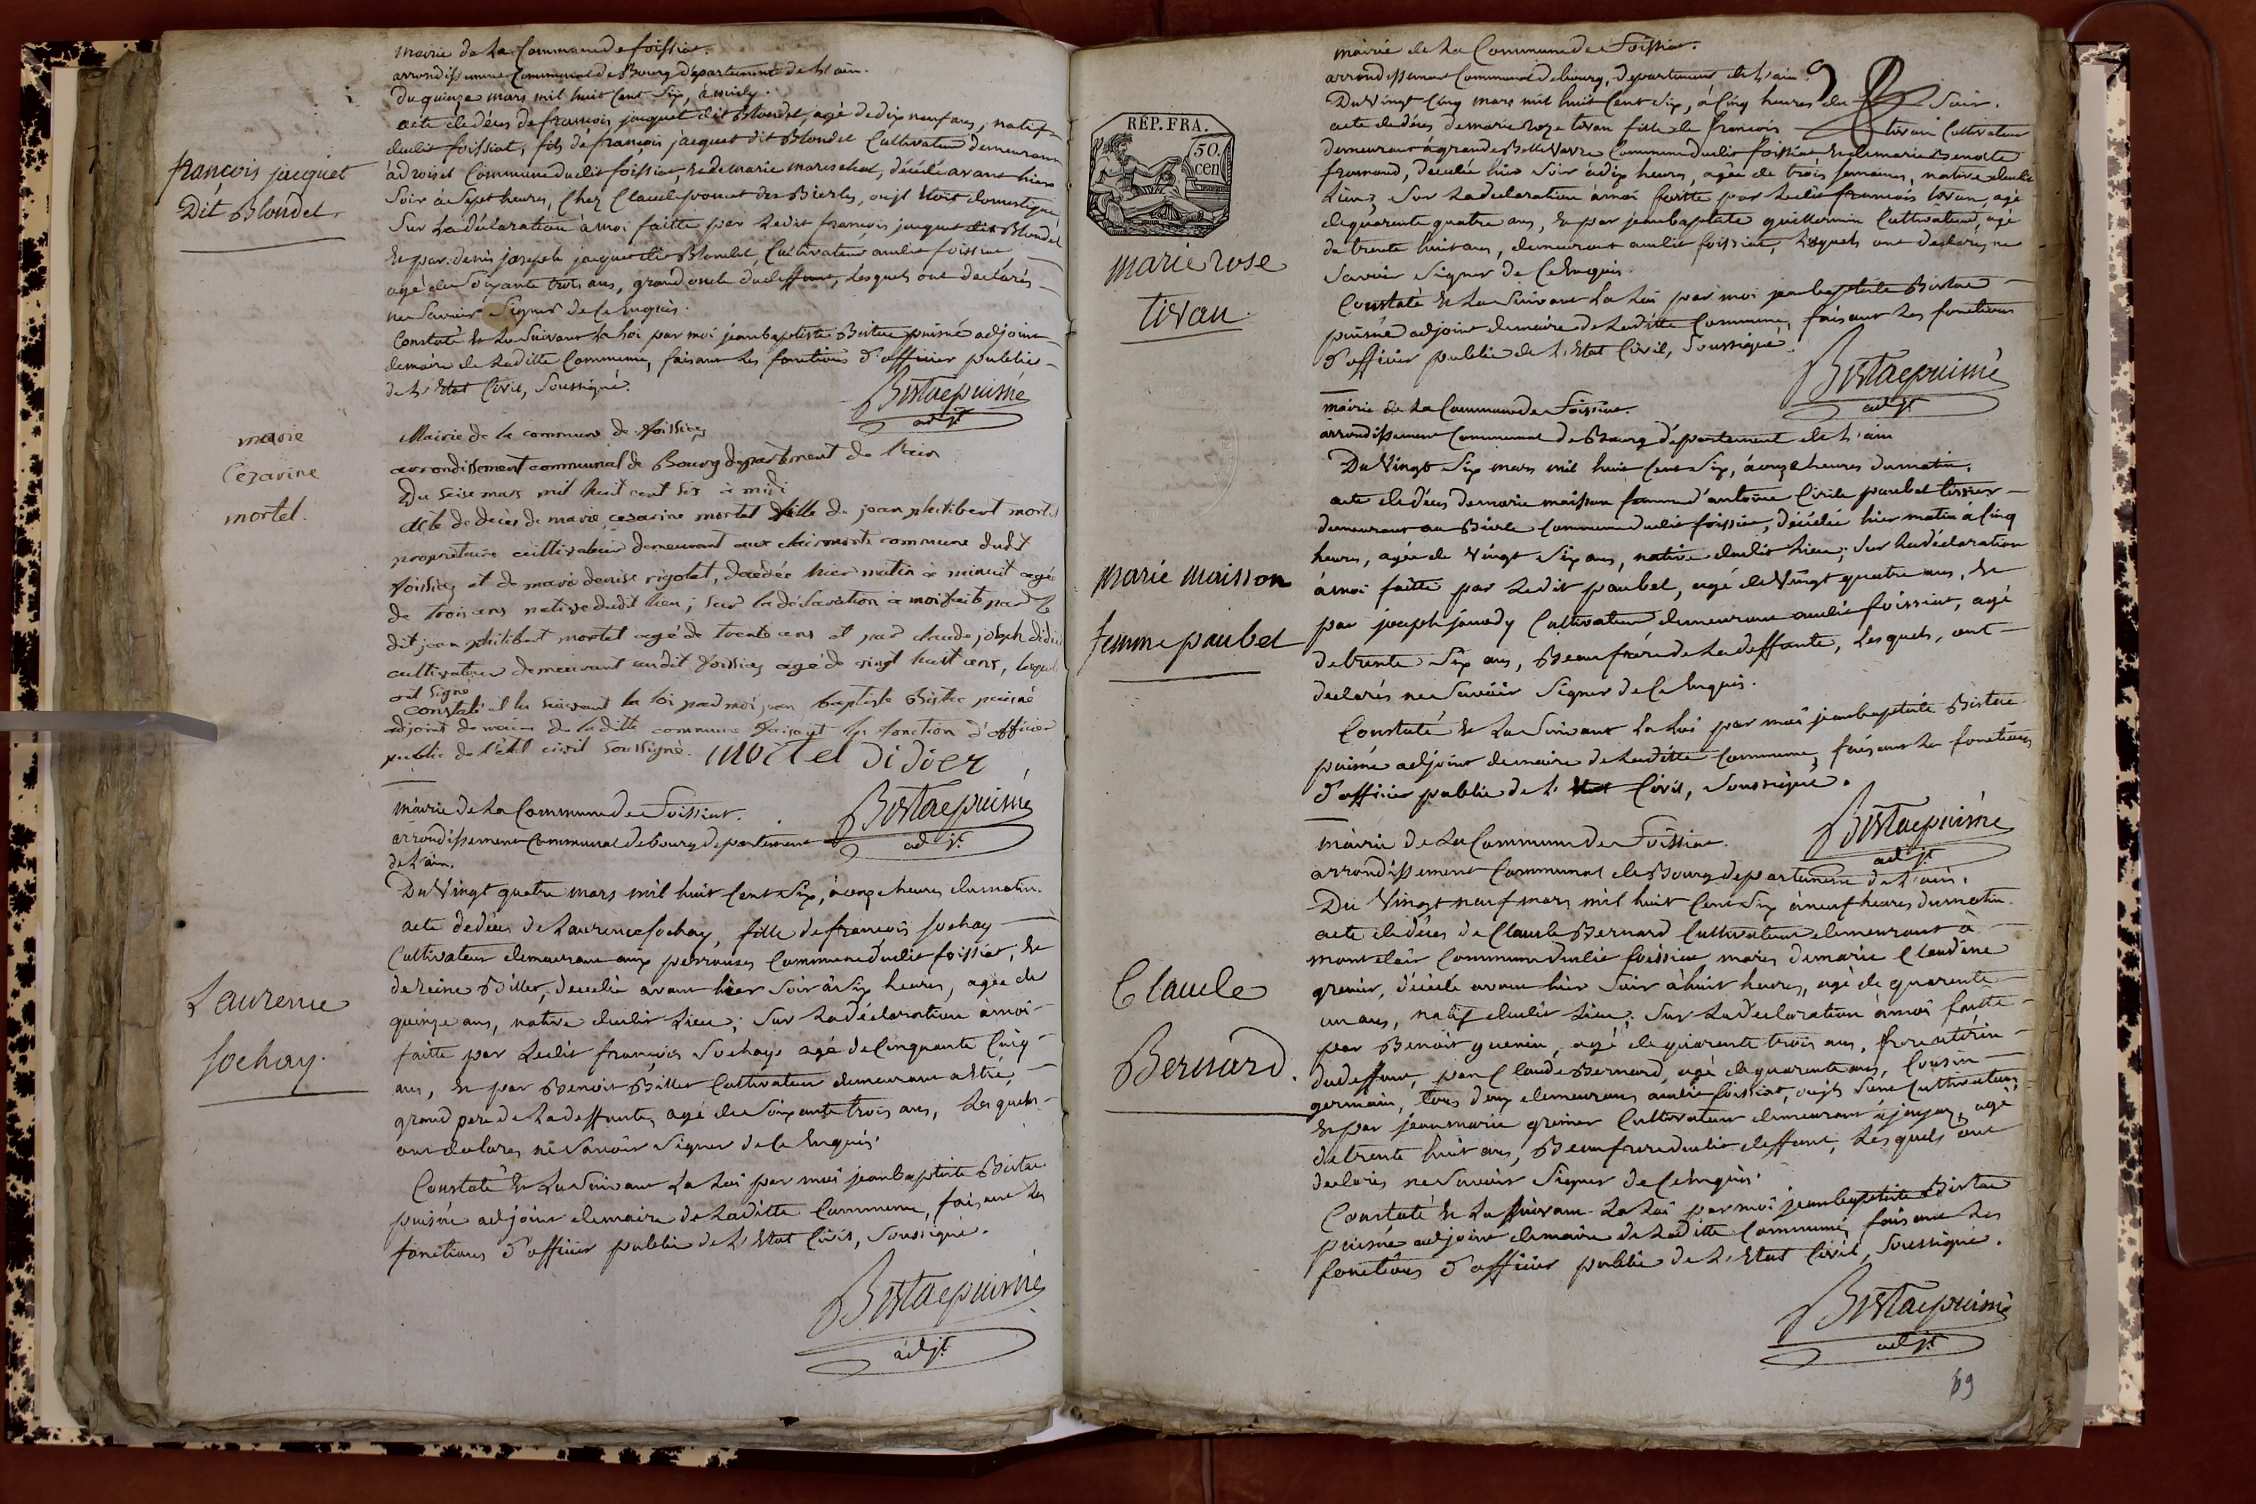 mairie de La Commune de foissiat.
arrondissement Communal de Bourg département de L'ain.
Du quinze mars mil huit Cent Six, à midy.
acte de décés de françois jacquet dit Blondet, agé de dix neuf ans, natif
dudit foissiat, fils de françois jacquet dit Blondet Cultivateur demeurant
à Commune dudit foissiat, et de marie mareschal, décédé avant hier
Soir à Sept heures, Chez Claude ou il étoit domestique,
Sur La déclaration à moi faitte par Ledit françois jacquet dit Blondet
et par denis joseph jacquet dit Blondet, Cultivateur audit foissiat
agé de Soixante trois ans, grand oncle du deffunt, Lesquels ont declarés
ne Savoir Signer de Ce Enquis.
Constaté et Lu Suivant La Loi par moi jean baptiste Bistac puisné adjoint
demaire de Laditte Commune, faisant Les fonctions d'officier public
de L'Etat Civil, Soussigné.
Bistac puisné
adjt
françois jacquet
Dit Blondet
Mairie de la commune de foissiat
arrondissement communal de Bourg departement de l'ain
Du seise mars mil huit cent six à midi
Acte de decès de marie cezarine mortel fille de jean philibert mortel
proprietaire cultivateur demeurant aux commune dudit
foissiat et de marie denise rigotet, decedée hier matin à minuit agée
de trois ans native dudit lieu; sur la déclaration à moi faite par le
dit jean philibert mortel agé de trente ans et par claude joseph didier
cultivateur demeurant audit foissiat agé de vingt huit ans, lesquels
ont signé
constaté et lu suivant la loi par moi jean baptiste Bistac puisné
adjoint de maire de laditte commune faisant les fonction d'officier
public de l'état civil soussigné. mortel didier
marie
Cezarine
mortel.
Bistac puisné
adjt
mairie de La Commune de Foissiat.
arrondissement Communal de bourg departement
de L'ain.
Du Vingt quatre mars mil huit Cent Six, à onze heures du matin.
acte de décés de Laurence Sochay, fille de françois Sochay
Cultivateur demeurant aux perrouses Commune dudit foissiat, et
de reine Billet, decedée avant hier Soir à Six heures, agée de
quinze ans, native dudit Lieu; Sur La déclaration à moi
faitte par Ledit françois Sochay agé de Cinquante Cinq
ans, et par Benoit Billet Cultivateur demeurant
grand pere de La deffunte, agé de Soixante trois ans, Lesquels
ont declarés ne Savoir Signer de Ce Enquis.
Constaté et Lu Suivant La Loi par moi jean baptiste Bistac
puisné adjoint demaire de Laditte Commune, faisant Les
fonctions d'officier public de L'Etat Civil, Soussigné.
Laurence
Sochay.
Bistac puisné
adjt
mairie de La Commune de Foissiat.
arrondissement Communal de bourg, departement de L'ain.
Du Vingt Cinq mars mil huit Cent Six, à Cinq heures du Soir.
acte de décés de marie roze tivan fille de françois tivan Cultivateur
demeurant à grande Commune dudit foissiat et de marie Benoite
fromond, decedée hier Soir à dix heures, agée de trois Semaines, native dudit
Lieu; Sur La declaration à moi faitte par Ledit françois tivan, agé
de quarente quatre ans, et par jean baptiste guillermin Cultivateur, agé
de trente huit ans, demeurant audit foissiat, Lesquels ont declarés ne
Savoir Signer de Ce Enquis.
Constaté et Lu Suivant La Loi par moi jean baptiste Bistac
puisné adjoint demaire de Laditte Commune, faisant Les fonctions
d'officier public de L'Etat Civil, Soussigné.
RÉP. FRA.
50
cen
marie rose
tivan.
Bistac puisné
adjt
mairie de La Commune de Foissiat.
arrondissement Communal de Bourg département de L'ain
Du Vingt Six mars mil huit Cent Six, à onze heures du matin.
acte de décés de marie maisson femme d'antoine Cirile paubel
demeurant au Commune dudit foissiat, décédée hier matin à Cinq
heures, agée de Vingt Six ans, native dudit Lieu; Sur La déclaration
à moi faitte par Ledit paubel, agé de Vingt quatre ans, et
par joseph Cultivateur demeurant audit foissiat, agé
de trente Six ans, Beaufrére de La deffunte, Lesquels, ont
declarés ne Savoir Signer de Ce Enquis.
Constaté et Lu Suivant La Loi par moi jean baptiste Bistac
puisné adjoint demaire de Laditte Commune, faisant Les fonctions
d'officier public de L'Etat Civil, Soussigné.
marie maisson
femme paubel
Bistac puisné
adjt
mairie de La Commune de Foissiat.
arrondissement Communal de Bourg departement de L'ain.
Du Vingt neuf mars mil huit Cent Six à neuf heures du matin.
acte de décés de Claude Bernard Cultivateur demeurant à
mont clair Commune dudit foissiat maris de marie Claudine
grénier, décédé avant hier Soir à huit heures, agé de quarente
un ans, natif dudit Lieu; Sur La declaration à moi faitte
par Benoit guenin, agé de quarente trois ans, frere uterin
du deffunt, par Claude Bernard, agé de quarente ans, Cousin
germain, tous deux demeurans audit foissiat, ou ils Sont Cultivateurs
et par jean marie grénier Cultivateur demeurant à jayat, agé
de trente huit ans, Beaufrere dudit deffunt, Lesquels ont
declarés ne Savoir Signer de Ce Enquis.
Constaté et Lu Suivant La Loi par moi jean baptiste Bistac
puisné adjoint demaire de Laditte Commune, faisant Les
fonctions d'officier public de L'Etat Civil, Soussigné.
Claude
Bernard.
Bistac puisné
adjt
69